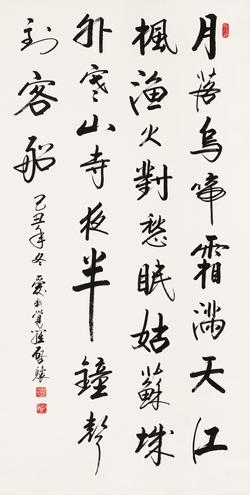 月落烏啼霜滿天江
楓漁火對愁眠姑蘇城
外寒山寺夜半鐘聲
到客船
己丑年冬愛新覺羅啟驤